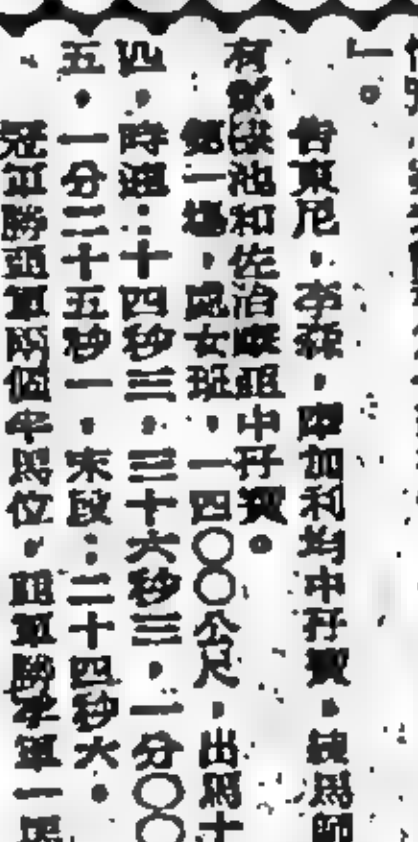 」。
告東尼，李森，陳加利均中孖寶，練馬師
有歐洪池和佐治蘇姐中孖寶。
第一場，風女班，一四〇〇公尺，出馬十
四。時速：十四秒三，三十六秒三，一分〇〇
五，一分二十五秒一。末段：二十四秒六。
冠軍勝亞軍兩個半馬位，亞軍勝季軍一馬